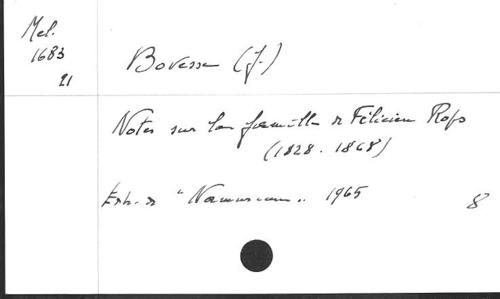 Mel.
1683
21
Bovesse (J.)
Notes sur la famille de Félicien Rops
(1828-1868)
Extr. de "Namurcum" 1965
8